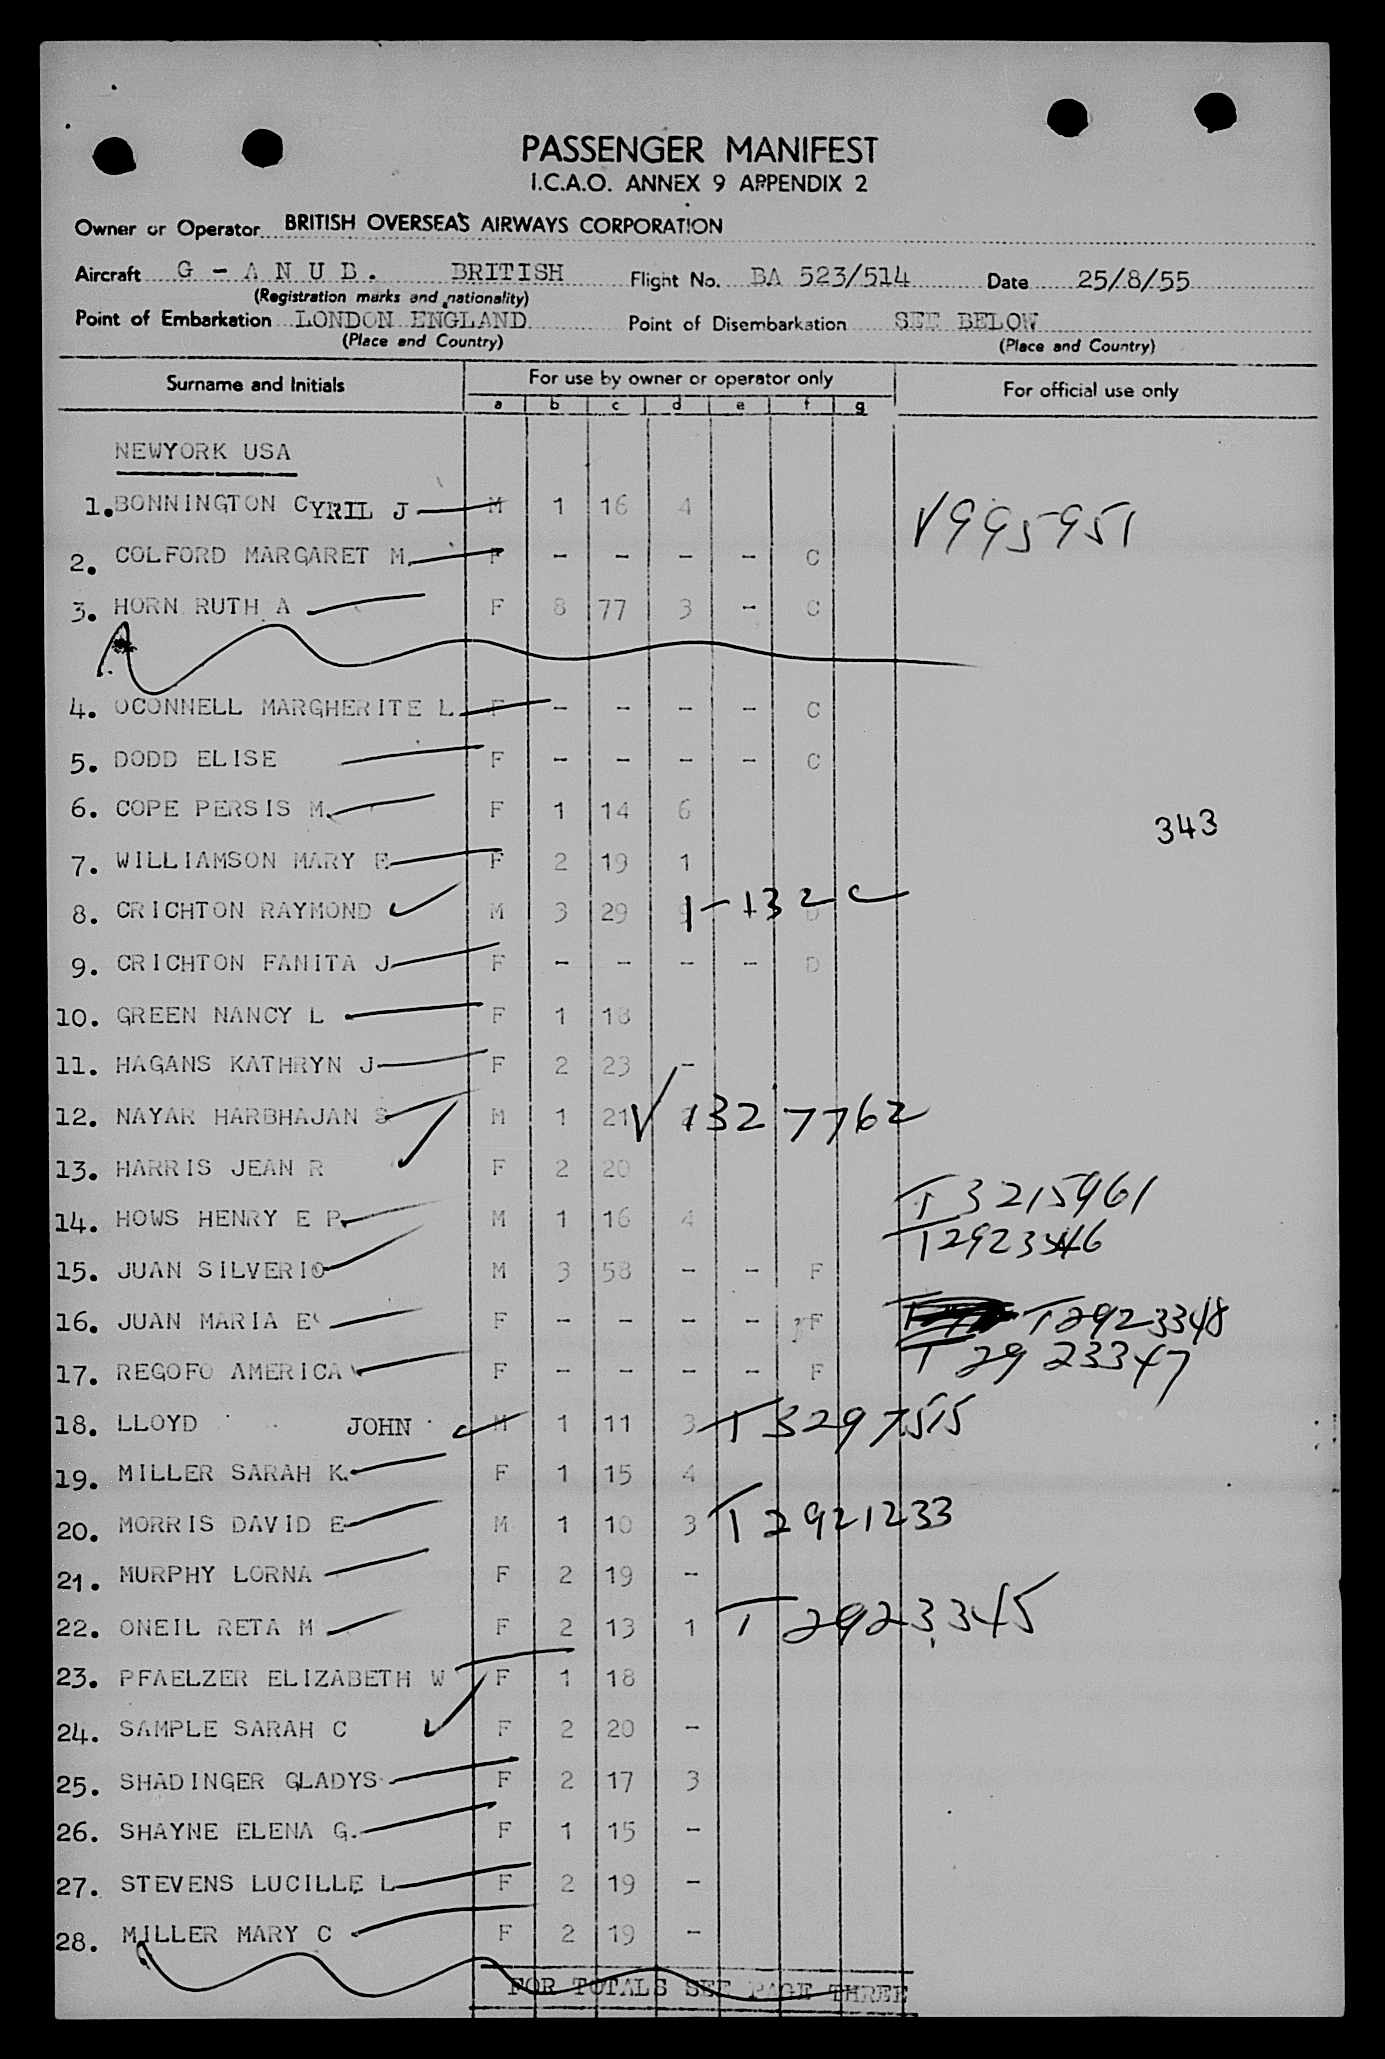 PASSENGER MANIFEST
I.C.A.O. ANNEX 9 APPENDIX 2
Owner or Operator BRITISH OVERSEAS AIRWAYS CORPORATION
Aircraft G - A N U B. BRITISH Flight No. BA 523/514 Date 25/8/55
(Registration marks and nationality)
Point of Embarkation LONDON ENGLAND Point of Disembarkation SEE BELOW
(Place and Country) (Place and Country)
Surname and Initials For use by owner or operator only For official use only
a b c d e f g
NEWYORK USA
1. BONNINGTON CYRIL J M 1 16 4 V995951
2. COLFORD MARGARET M. F - - - - C
3. HORN RUTH A F 8 77 3 - C
4. OCONNELL MARGHERITE L F - - - - C
5. DODD ELISE F - - - - C
6. COPE PERSIS M. F 1 14 6
343
7. WILLIAMSON MARY E F 2 19 1
8. CRICHTON RAYMOND M 3 29 D
9. CRICHTON FANITA J F - - - - D
10. GREEN NANCY L F 1 18
11. HAGANS KATHRYN J F 2 23 -
12. NAYAR HARBHAJAN S M 1 21 V 1327762
13. HARRIS JEAN R F 2 20
T 3215961
14. HOWS HENRY E P. M 1 16 4
T2923346
15. JUAN SILVERIO M 3 58 - - F
16. JUAN MARIA E F - - - - F T2923348
17. REGOFO AMERICA F - - - - F T 2923347
18. LLOYD JOHN M 1 11 3 T 3297515
19. MILLER SARAH K. F 1 15 4
20. MORRIS DAVID E M 1 10 3 T 2921233
21. MURPHY LORNA F 2 19 -
22. ONEIL RETA M F 2 13 1 T 2923345
23. PFAELZER ELIZABETH W F 1 18
24. SAMPLE SARAH C F 2 20 -
25. SHADINGER GLADYS F 2 17 3
26. SHAYNE ELENA G. F 1 15 -
27. STEVENS LUCILLE L F 2 19 -
28. MILLER MARY C F 2 19 -
FOR TOTALS SEE PAGE THREE